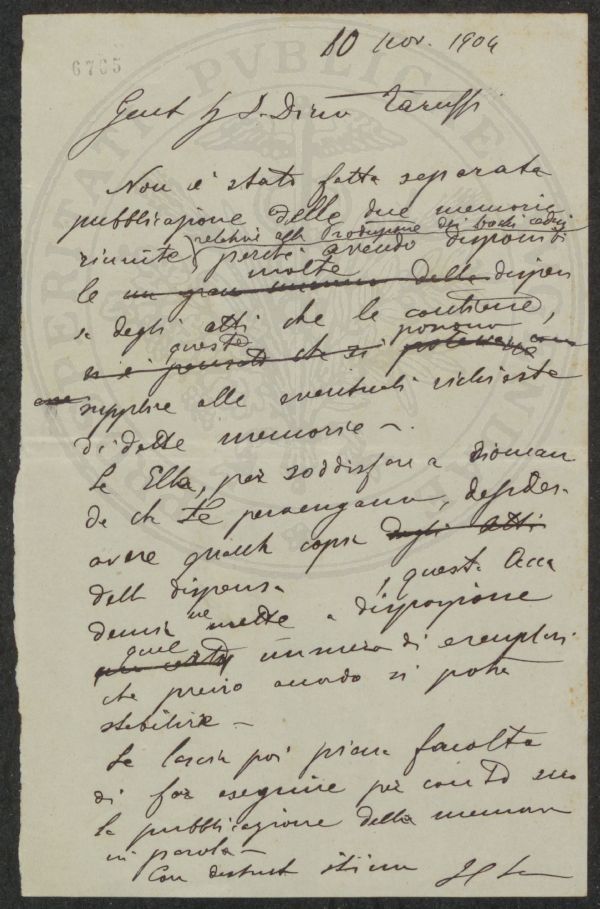 10 Nov. 1904
6765
Gent Sig D. Dino Taruffi
Non è stata fatta separata
pubblicazione delle due memorie
relative alla Produzione dei bachi
riunite, perché avendo disponibi
molte
le un gran numero delle dispen
se degli atti che le contiene,
queste possono
si è pensato che si
supplire alle eventuali richieste
di dette memorie –.
Se Ella, per soddisfare a doman
de che Le pervengano, desidera
avere qualche copia degli atti
dell dispensa, questa Acca
demia ne mette a disposizione
quel numero di esemplari
che previo accordo si potrà
stabilire –
Le lascia poi piena facoltà
di far eseguire per conto suo
la pubblicazione della memoria
in parola –
Con distint stima